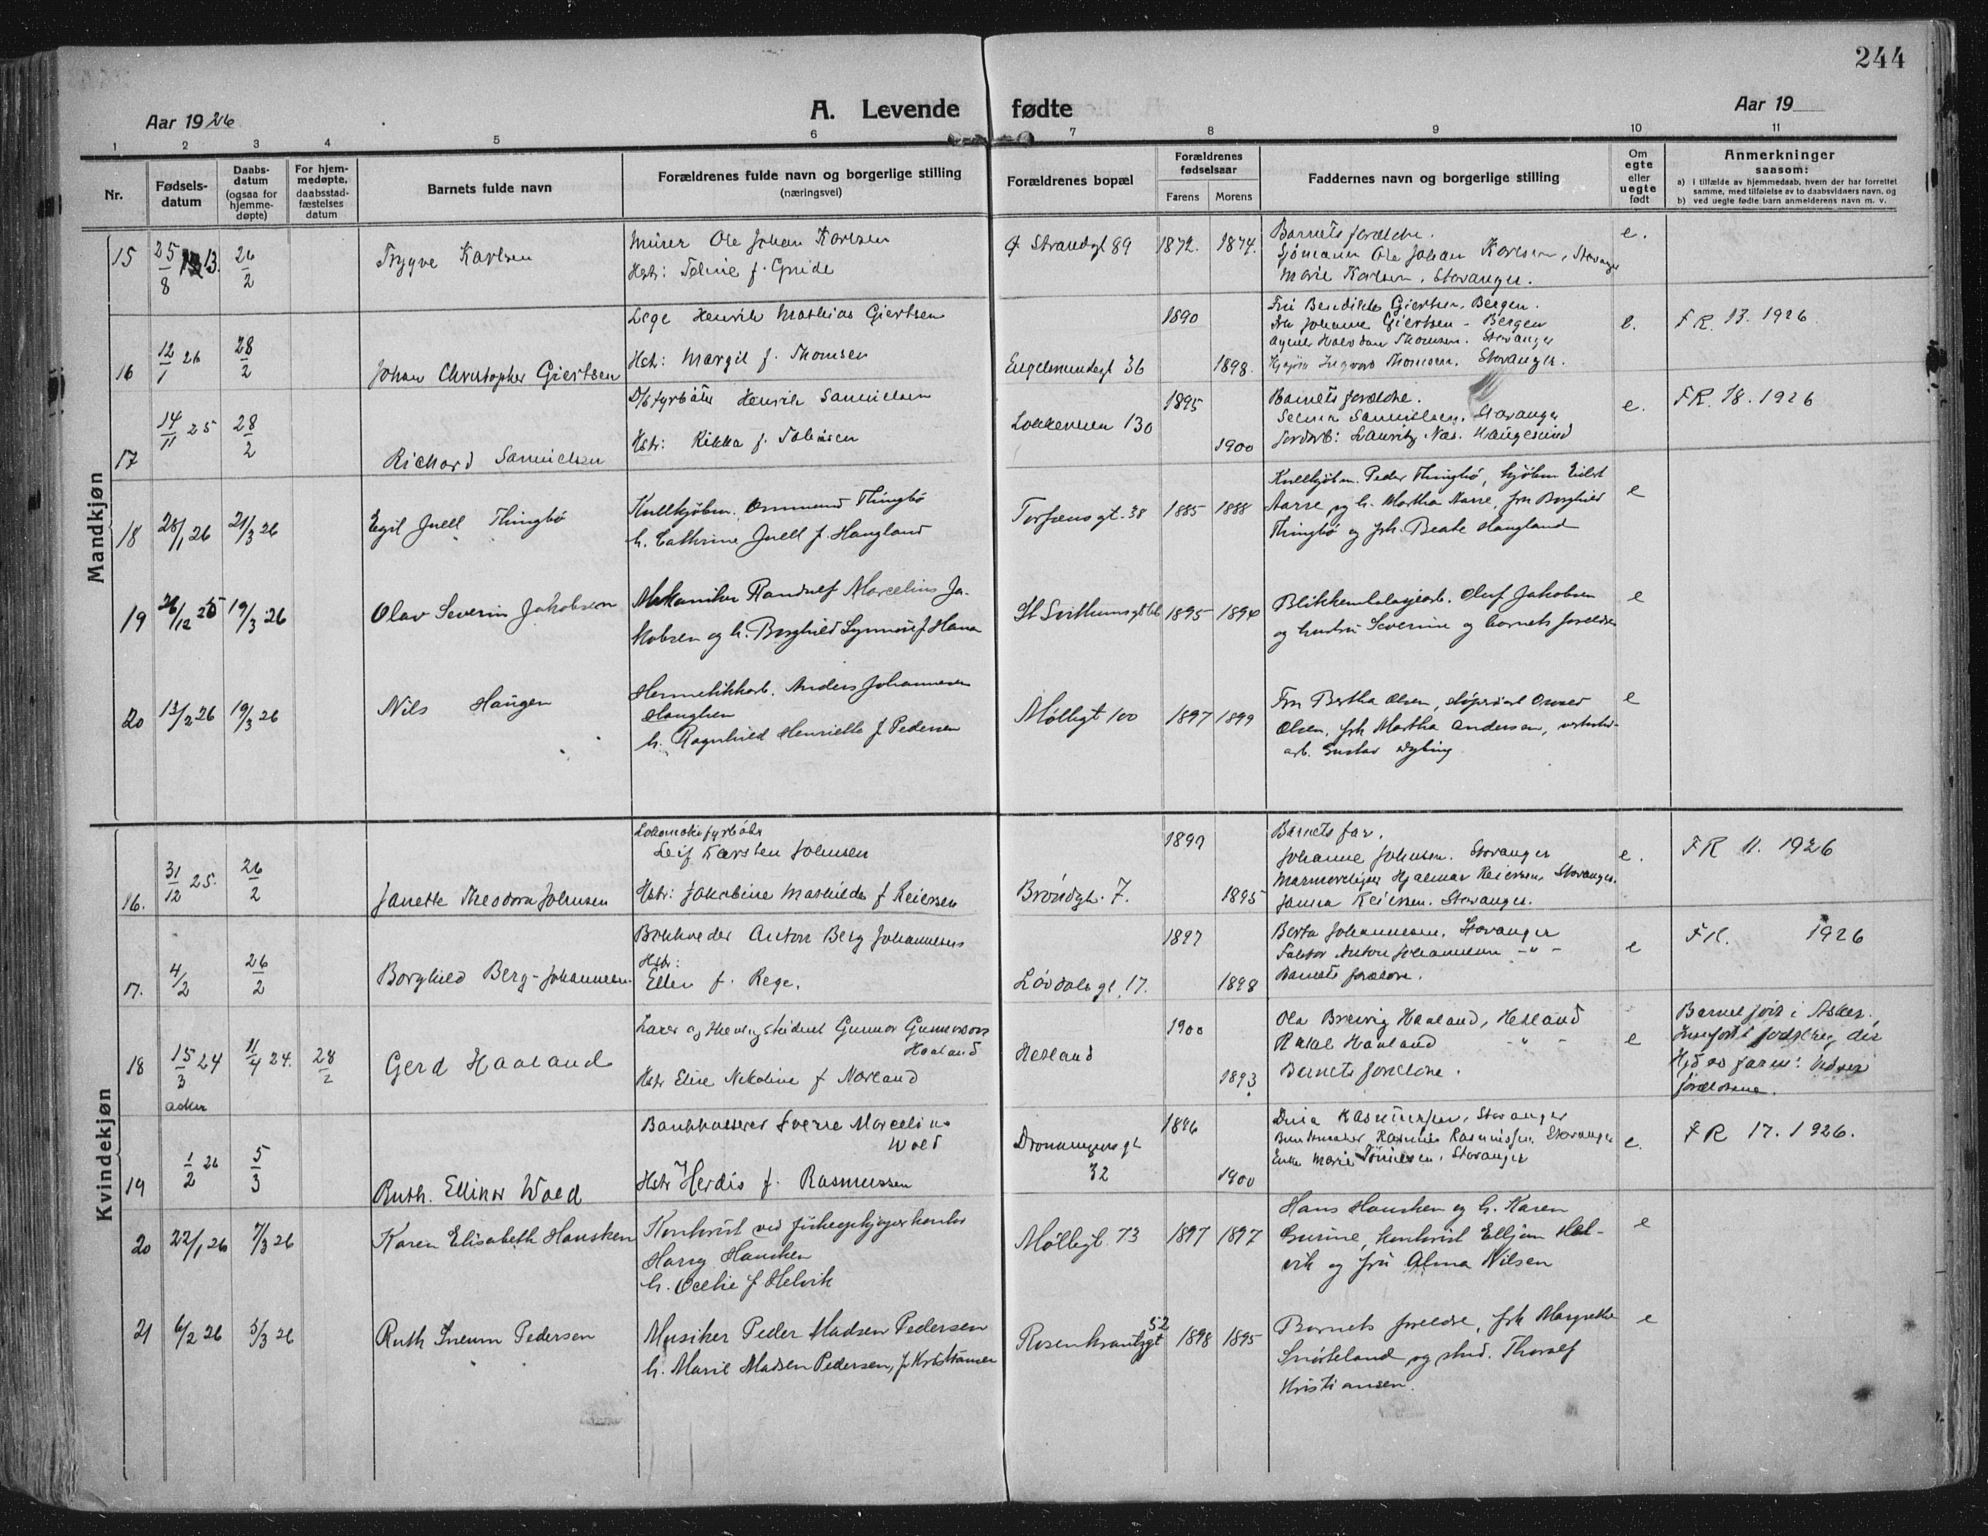 244
Aar 1926
A. Levende fødte
Aar 19
1 2 3 4 5 6 7 8 9 10 11
Nr.
Fødsels-
datum
Daabs-
datum
(ogsaa for
hjemme-
døpte)
For hjem-
medøpte,
daabsstad-
fæstelses
datum
Barnets fulde navn
Forældrenes fulde navn og borgerlige stilling
(næringsvei)
Forældrenes bopæl
Forældrenes
fødselsaar
Farens
Morens
Faddernes navn og borgerlige stilling
Om
egte
eller
uegte
født
Anmerkninger
saasom:
a) i tilfælde av hjemmedaab, hvem der har forrettet
samme, med tilføielse av to daabsvidners navn, og
b) ved uegte fødte barn anmelderens navn m. v.
Mandkjøn
15 25/8 13. 26/2
Trygve Karlsen
Murer Ole Johan Karlsen
Hstr: Toline f. Gride
Ø Strandgt 89 1872. 1874.
Barnets forældre.
Sjømann Ole Johan Karlsen, Stavanger
Marie Karlsen, Stavanger.
e.
16 12/1 26 28/2
Johan Christopher Giertsen
Læge Henrik Mathias Giertsen
Hstr: Margit f. Thomsen
Engelsmindegt 36 1890 1898.
Giertsen, Bergen.
Johanne Giertsen - Bergen
Thomsen. Stavanger
Ingvard Thomsen. Stavanger.
e.
FR. 13. 1926.
17 14/11 25 28/2
Richard Samuelsen
D/S fyrbøter Henrik Samuelsen
Hstr: Rikka f. Tobiasen
Løkkeveien 130 1895 1900
Barnets forældre.
Selma Samuelsen. Stavanger
Lauritz Næs. Haugesund
e.
FR. 18. 1926
18 28/1 26 21/3 26
Egil Juell Thingbø
Kullkjøbm. Ommund Thingbø
h. Cathrine Juell f Haugland
Torfæusgt. 38 1885 1888
Kullkjøbm. Peder Thingbø, kjøbm Eilert
Aarre og h. Martha Aarre, fru Borghild
Thingbø og frk. Beate Haugland
e
19 26/12 25 19/3 26
Olav Severin Jakobsen
Mekaniker Randulf Marcelius Ja-
kobsen og h. Borghild Synnøve f Hana
St Svithunsgt 1895 1894
Blikkemballagearb. Oluf Jakobsen
og hustru Severine og barnets foreldre
e
20 13/2 26 19/3 26
Nils Haugen
Hermetikkarb. Anders Johannesen
Haughen
h. Ragnhild Henriette f Pedersen
Møllegt 100 1897 1899
Fru Bertha Olsen,
Olsen, frk Martha Andersen,
arb. Gustav
e
Kvindekjøn
16. 31/12 25. 26/2
Janette Theodora Johnsen
Lokomotivfyrbøter
Leif Karsten Johnsen
Hstr: Jakobine Mathilde f Reiersen
Brøndgt. 7. 1895
Barnets far.
Johanne Johnsen. Stavanger
Hjalmar Reiersen, Stavanger.
Janna Reiersen. Stavanger.
e.
FR 11. 1926
17. 4/2 26/2
Borghild Berg-Johannesen
Bokholder Anton Berg Johannesen
Hstr:
Ellen f. Rege.
Løvdalsgt. 17. 1897 1898
Berta Johannesen, Stavanger
Faktor Anton Johannesen -"-
Barnets forældre.
e
FR. 1926
18 15/3 24 11/4 24. 28/2
Asker
Gerd Haaland
Lærer og Gunnar Gunnarson
Haaland
Hstr Elise Nikoline f Norland
Hetland 1900 1893
Ola Breivig Haaland, Hetland
Rakel Haaland -"-
Barnets foreldre.
e
Barnet født i Asker.
foreldrene.
19 1/2 26 5/3
Ruth. Ellinor Wold
Bankkasserer Sverre Marcelius
Wold
Hstr Herdis f. Rasmussen
Dronningensgt
32 1896 1900
Rasmussen, Stavanger
Buntmaker Rasmus Rasmussen. Stavanger
Enke Marie Tønnesen, Stavanger
e.
FR 17. 1926.
20 22/1 26 7/3 26
Karen Elisabeth Hansken
Kontorist ved
Harry Hansken
h. Ocelie f Helvik
Møllegt. 73 1897 1897
Hans Hansken og h. Karen
Gurine, kontorist Elljan Hel-
vik og fru Alma Nilsen
e
21 6/2 26 5/3 26
Ruth Sneum Pedersen
Musiker Peder Madsen Pedersen
h. Marie Madsen Pedersen, f. Kristiansen
Rosenkrantzgt 52 1898 1895
Barnets foreldre, frk Margrethe
Snørteland og stud. Thoralf
Kristiansen.
e